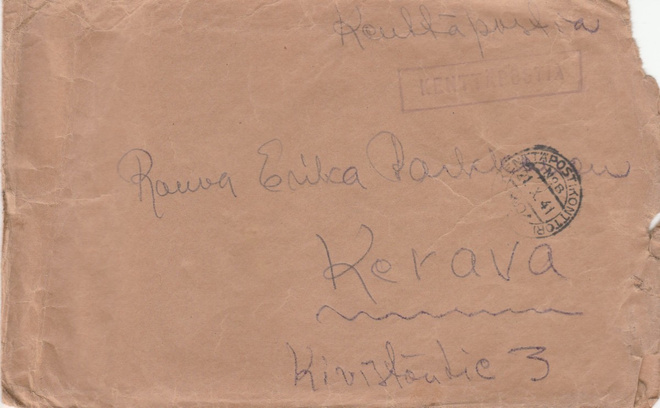 Kenttäpostia
KENTTÄPOSTIA
Rouva Erika Parkkonen
KENTTÄPOSTIKONTTORI
No 8
X. 41
Kerava
Kivistöntie 3